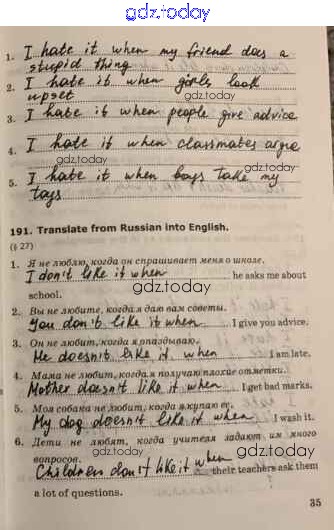 gdz.today
1. I hate it when my friend does a
stupid thing
2. I hate it when girls look
upset
gdz.today
3. I hate it when people give advice
4. I hate it when classmates argue
gdz.today
5. I hate it when boys take my
toys
191. Translate from Russian into English.
(§ 27)
gdz.today
1. Я не люблю, когда он спрашивает меня о школе.
I don't like it when he asks me about
gdz.today
school.
2. Вы не любите, когда я даю вам советы.
You don't like it when I give you advice.
3. Он не любит, когда я опаздываю.
gdz.today
He doesn't like it when I am late.
4. Мама не любит, когда я получаю плохие отметки.
Mother doesn't like it when I get bad marks.
gdz.today
5. Моя собака не любит, когда я купаю её.
My dog doesn't like it when I wash it.
6. Дети не любят, когда учителя задают им много
вопросов.
Children don't like it when their teachers ask them
gdz.today
a lot of questions.
35
gdz.today